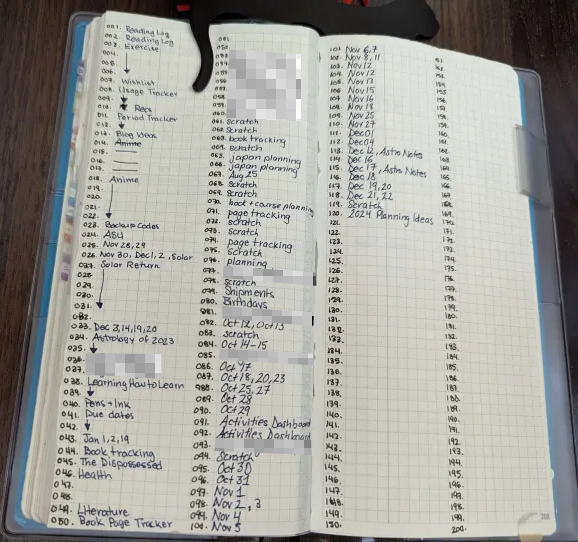 001. Reading Log
002. Reading Log
003. Exercise
004.
005.
006.
007. Wishlist
008. Usage Tracker
009.
010. Recs
011. Period Tracker
012.
013. Blog Ideas
014. Anime
015.
016.
017.
018. Anime
019.
020.
021.
022.
023. Backup Codes
024. AS4
025. Nov 28, 29
026. Nov 30, Dec 1, 2, Solar
027. Solar Return
028.
029.
030.
031.
032.
033. Dec 8, 14, 19, 20
034. Astrology of 2023
035.
036.
037.
038. Learning How to Learn
039.
040. Pens + Ink
041. Due dates
042.
043. Jan 1, 2, 19
044. Book tracking
045. The Dispossessed
046. Health
047.
048.
049. Literature
050. Book Page Tracker
051.
052.
060.
061. scratch
062. scratch
063. book tracking
064. scratch
065. japan planning
066. japan planning
067. Aug 25
068. scratch
069. scratch
070. book + course planning
071. page tracking
072. scratch
073. scratch
074. page tracking
075. scratch
076. planning
077.
078. scratch
079. Shipments
080. Birthdays
081.
082. Oct 12, Oct 13
083. scratch
084. Oct 14-15
085.
086. Oct 17
087. Oct 18, 20, 23
088. Oct 25, 27
089. Oct 28
090. Oct 29
091. Activities Dashboard
092. Activities Dashboard
093.
094. Scratch
095. Oct 30
096. Oct 31
097. Nov 1
098. Nov 2, 3
099. Nov 4
100. Nov 5
101. Nov 6, 7
102. Nov 8, 11
103. Nov 12
104. Nov 12
105. Nov 13
106. Nov 15
107. Nov 16
108. Nov 18
109. Nov 25
110. Nov 27
111. Dec 01
112. Dec 04
113. Dec 12, Astro Notes
114. Dec 16
115. Dec 17, Astro Notes
116. Dec 18
117. Dec 19, 20
118. Dec 21, 22
119. Scratch
120. 2024 Planning Ideas
121.
122.
123.
124.
125.
126.
127.
128.
129.
130.
131.
132.
133.
134.
135.
136.
137.
138.
139.
140.
141.
142.
143.
144.
145.
146.
147.
148.
149.
150.
151.
152.
153.
154.
155.
156.
157.
158.
159.
160.
161.
162.
163.
164.
165.
166.
167.
168.
169.
170.
171.
172.
173.
174.
175.
176.
177.
178.
179.
180.
181.
182.
183.
184.
185.
186.
187.
188.
189.
190.
191.
192.
193.
194.
195.
196.
197.
198.
199.
200.